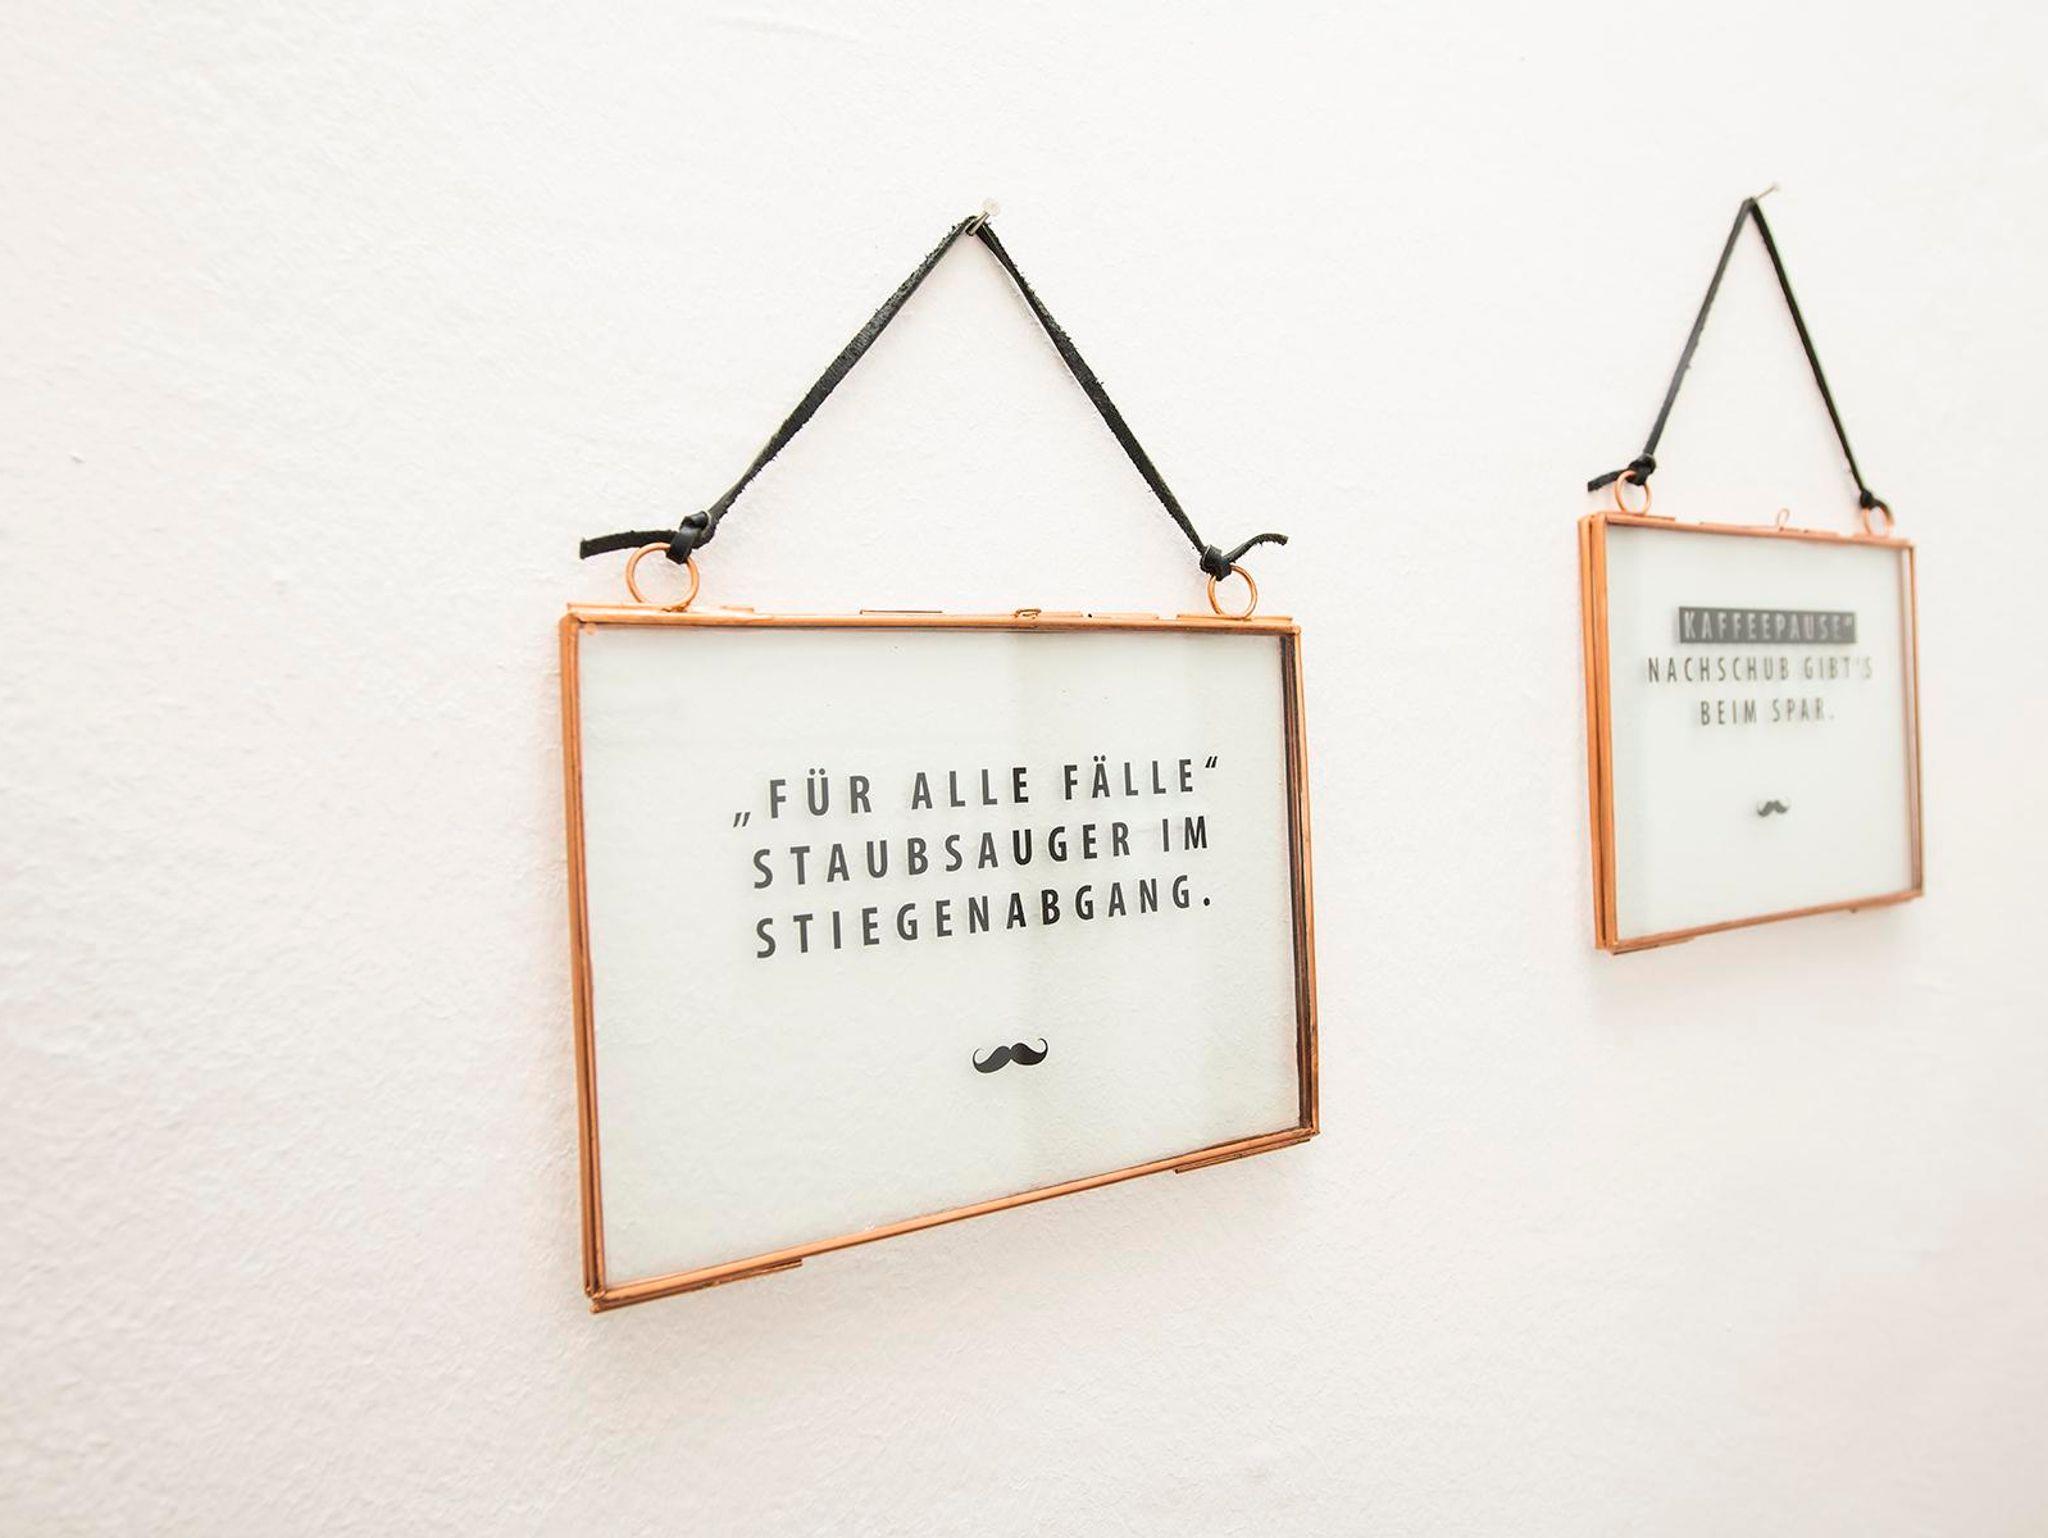 „FÜR ALLE FÄLLE“
STAUBSAUGER IM
STIEGENABGANG.
KAFFEEPAUSE“
NACHSCHUB GIBT'S
BEIM SPAR.